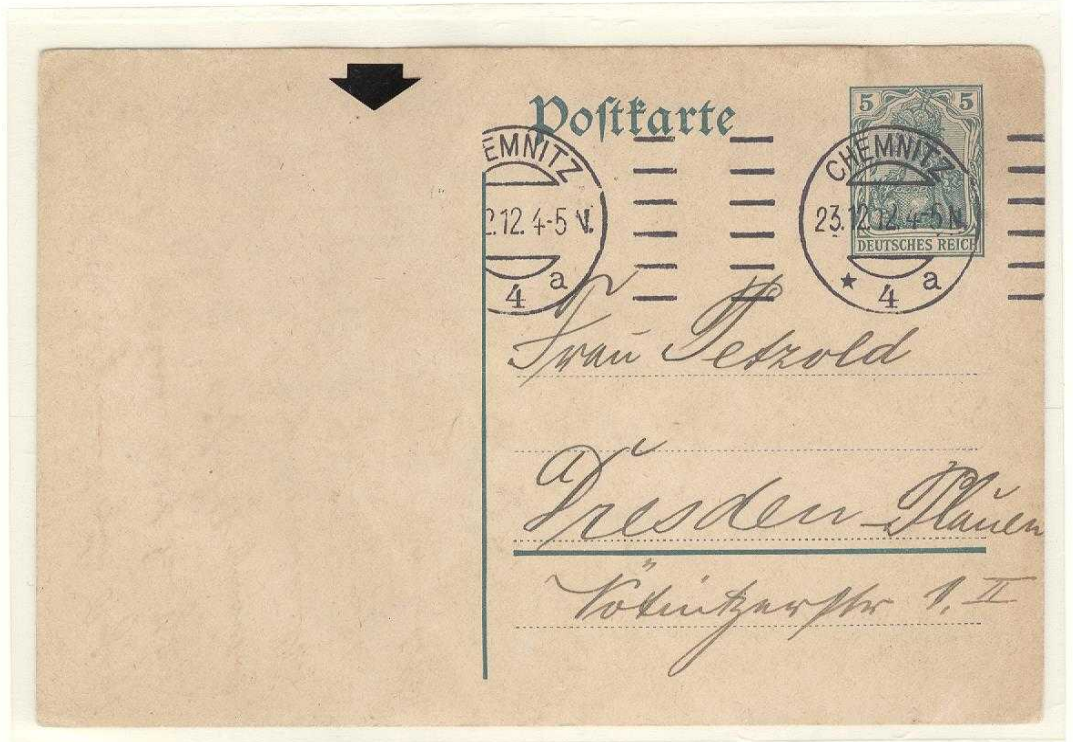 Postkarte
5 5
DEUTSCHES REICH
EMNITZ
2.12. 4-5 V.
4 a
CHEMNITZ
23.12.12. 4-5 N.
* 4 a
Frau Petzold
Dresden - Plauen
Nötnitzerstr 1. II